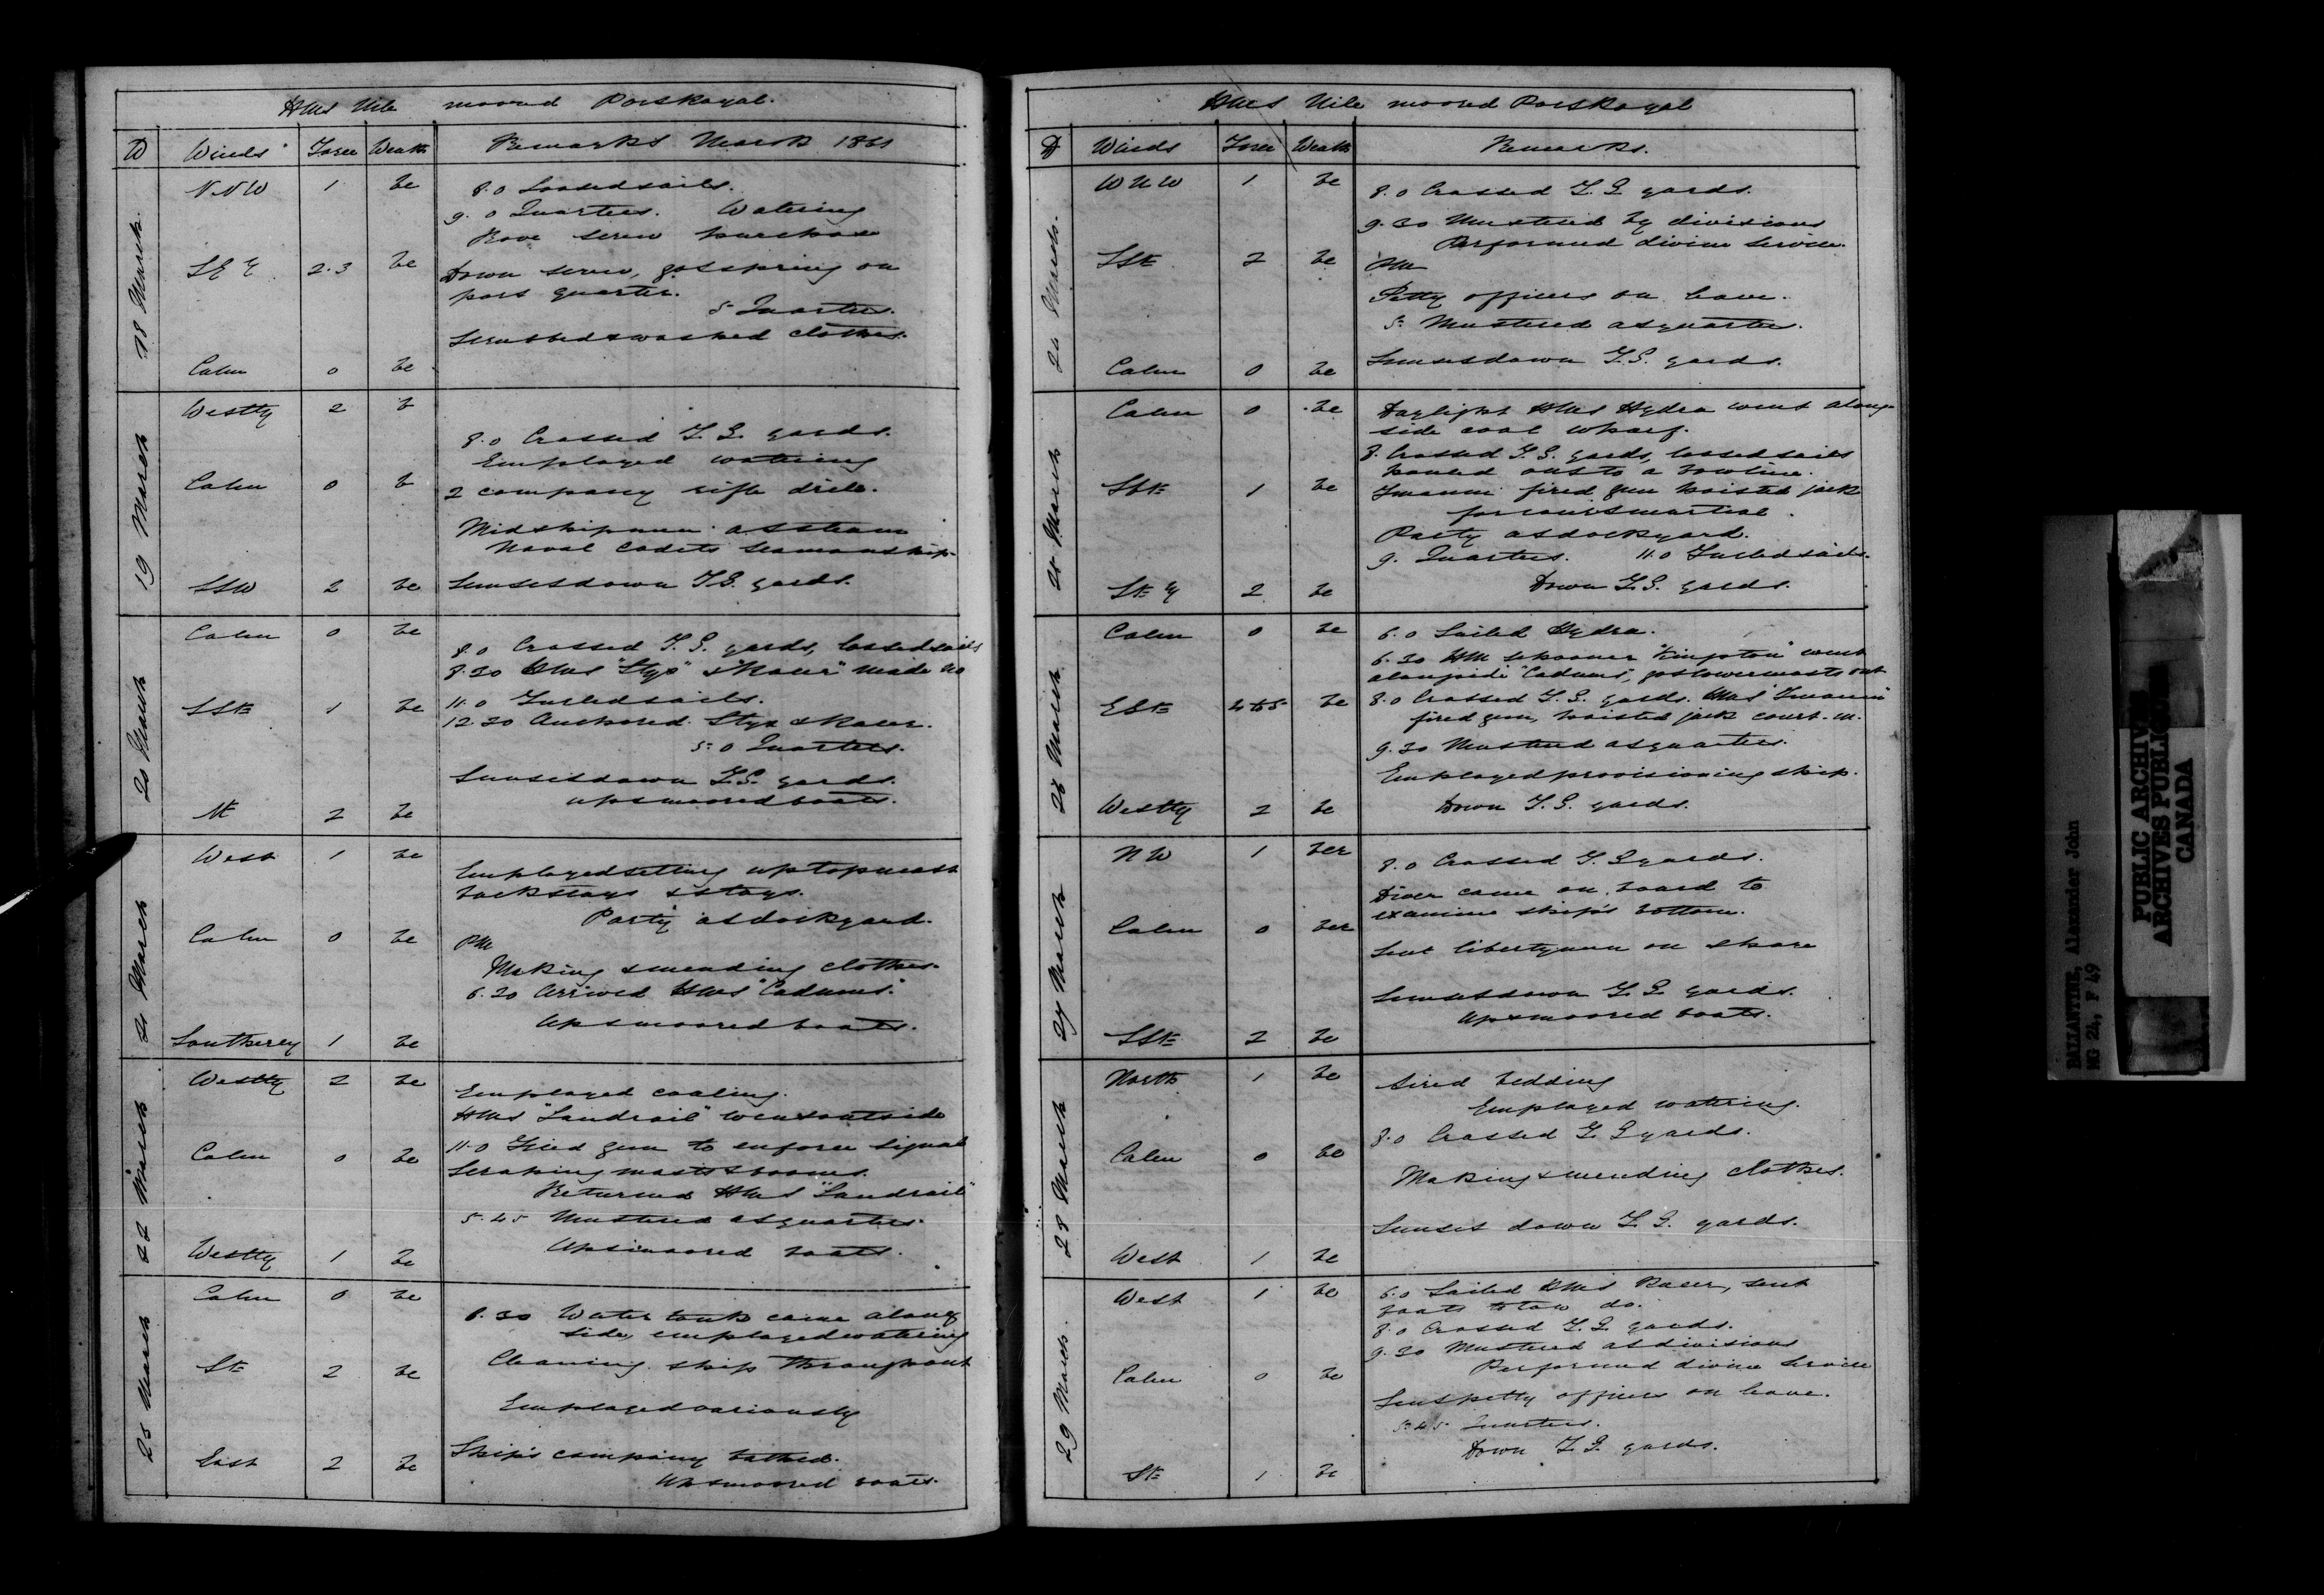 HMS Nile moored Port Royal.
D Winds Force Weath Remarks March 1861
18 March.
N.N.W 1 bc 8.0 Loosed sails.
9.0 Quarters. Watering
Rove screw purchase
S E E 2.3 bc Down screw, got spring on
port quarter.
5 Quarters.
Scrubbed & washed clothes.
Calm 0 bc
19 March
Westly 2 b
8.0 Crossed T.G. yards.
Employed watering
Calm 0 b 2 company rifle drill.
Midshipmen at steam
Naval Cadets Seamanship.
SSW 2 bc Sunset down T.G. yards.
20 March
Calm 0 bc
8.0 Crossed T.G. yards, loosed sails
8.30 HMS "Styx" & "Racer" made No
SSE 1 bc 11.0 Furled sails.
12.30 Anchored Styx & Racer.
5.0 Quarters.
Sunset down T.G. yards.
Up & moored boats.
NE 2 bc
21 March
West 1 bc Employed setting up topmast
backstays & stays.
Party at dockyard.
Calm 0 bc PM
Making & mending clothes.
6.30 Arrived HMS "Cadmus".
Up & moored boats.
Southerly 1 bc
22 March
Westly 2 bc Employed coaling.
HMS "Landrail" went outside
Calm 0 bc 11.0 Fired gun to enforce signal
Scraping masts & booms.
Returned HMS "Landrail"
5.45 Mustered at quarters.
Westly 1 bc Up & moored boats.
23 March
Calm 0 bc
6.30 Water tank came along
side, employed watering
SE 2 bc Cleaning ship throughout
Employed variously
East 2 bc Ship's company bathed.
Up & moored boats.
HMS Nile moored Port Royal
D Winds Force Weath Remarks.
24 March.
WNW 1 bc 8.0 Crossed T.G. yards.
9.30 Mustered by divisions
Performed divine service.
SSE 2 bc PM
Petty officers on leave.
5. Mustered at quarters.
Calm 0 bc Sunset down T.G. yards.
25 March
Calm 0 bc Daylight HMS Hydra went along-
side coal wharf.
8. Crossed T.G. yards, loosed sails
hauled out to a bowline.
SSE 1 bc Imaum fired gun hoisted jack
for court martial.
Party at dockyard.
9. Quarters. 11.0 Furled sails.
Down T.G. yards.
SE E 2 bc
26 March
Calm 0 bc 6.0 Sailed Hydra.
6.30 HM schooner "Kingston" went
alongside "Cadmus", got lowermasts out
EbE 4 to 5 bc 8.0 Crossed T.G. yards. HMS Imaum
fired gun, hoisted jack court-m.
9.30 Mustered at quarters.
Employed provisioning ship.
Westly 2 bc Down T.G. yards.
27 March
NW 1 bcr 8.0 Crossed T.G. yards.
Diver came on board to
examine ship's bottom.
Calm 0 bcr
Sent libertymen on shore
Sunset down T.G. yards.
Up & moored boats.
SSE 2 bc
28 March
North 1 bc Aired bedding
Employed watering.
8.0 Crossed T.G. yards.
Calm 0 bc
Making & mending clothes.
Sunset down T.G. yards.
West 1 bc
29 March.
West 1 bc 6.0 Sailed HMS Racer, sent
boats to tow do.
8.0 Crossed T.G. yards.
9.30 Mustered at divisions
Performed divine service
Calm 0 bc
Sent petty officers on leave.
5.45 Quarters.
Down T.G. yards.
SE 1 bc
BALLANTINE, Alexander John
MG 24, F 49
PUBLIC ARCHIVES
ARCHIVES PUBLIQUES
CANADA